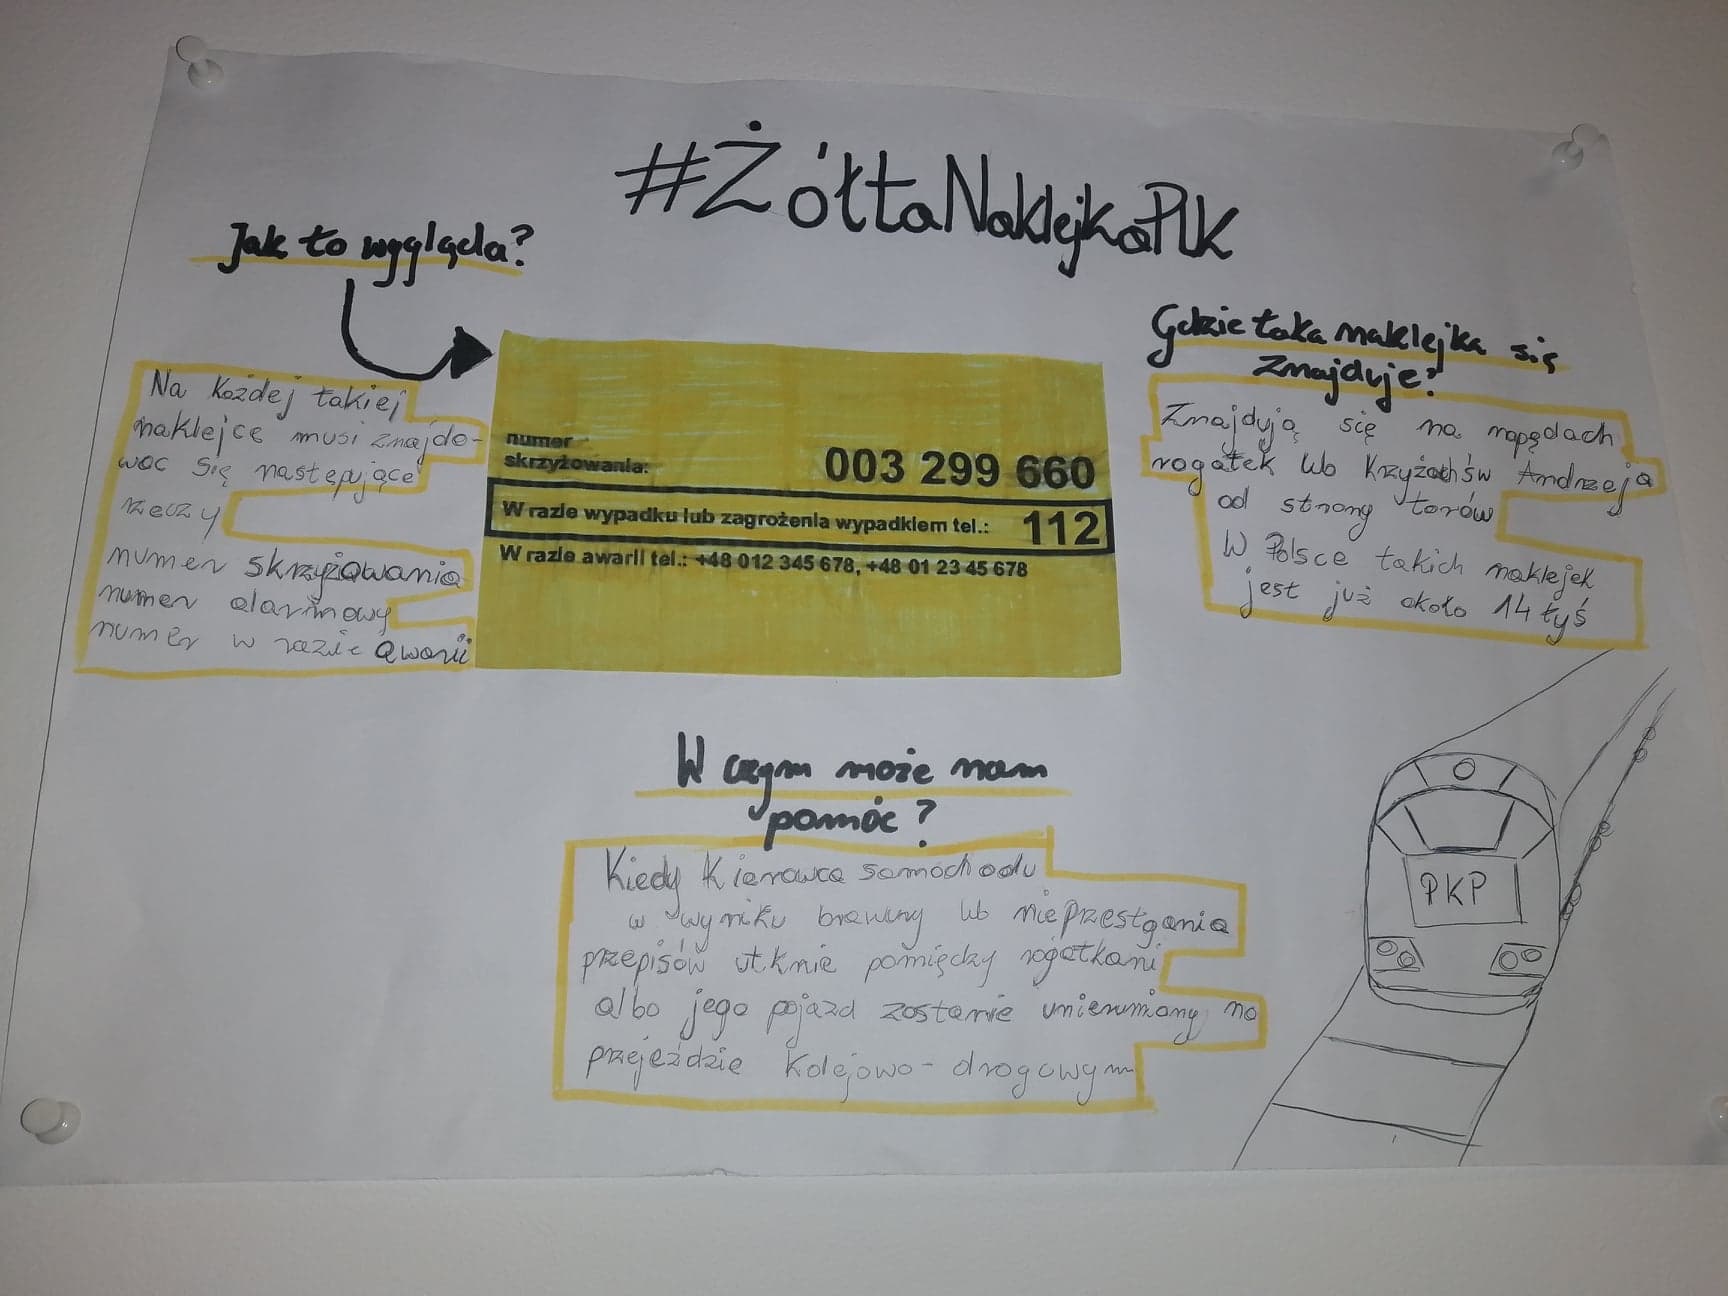 #ŻółtaNaklejkaPLK
Jak to wygląda?
Na każdej takiej
naklejce musi znajdo-
wac się następujące
rzeczy
numer skrzyżowania
numer alarmowy
numer w razie awarii
numer
skrzyżowania:
003 299 660
W razie wypadku lub zagrożenia wypadkiem tel.: 112
W razie awarii tel.: +48 012 345 678, +48 01 23 45 678
Gdzie taka naklejka się
znajduje?
Znajdują się na napędach
rogatek lub Krzyżach św Andrzeja
od strony torów
W Polsce takich naklejek
jest już około 14 tyś
W czym może nam
pomóc?
Kiedy kierowca samochodu
w wyniku brawury lub nieprzestgania
przepisów utknie pomiędzy rogatkami
albo jego pojazd zostanie unieruniony na
przejeździe kolejowo-drogowym
PKP